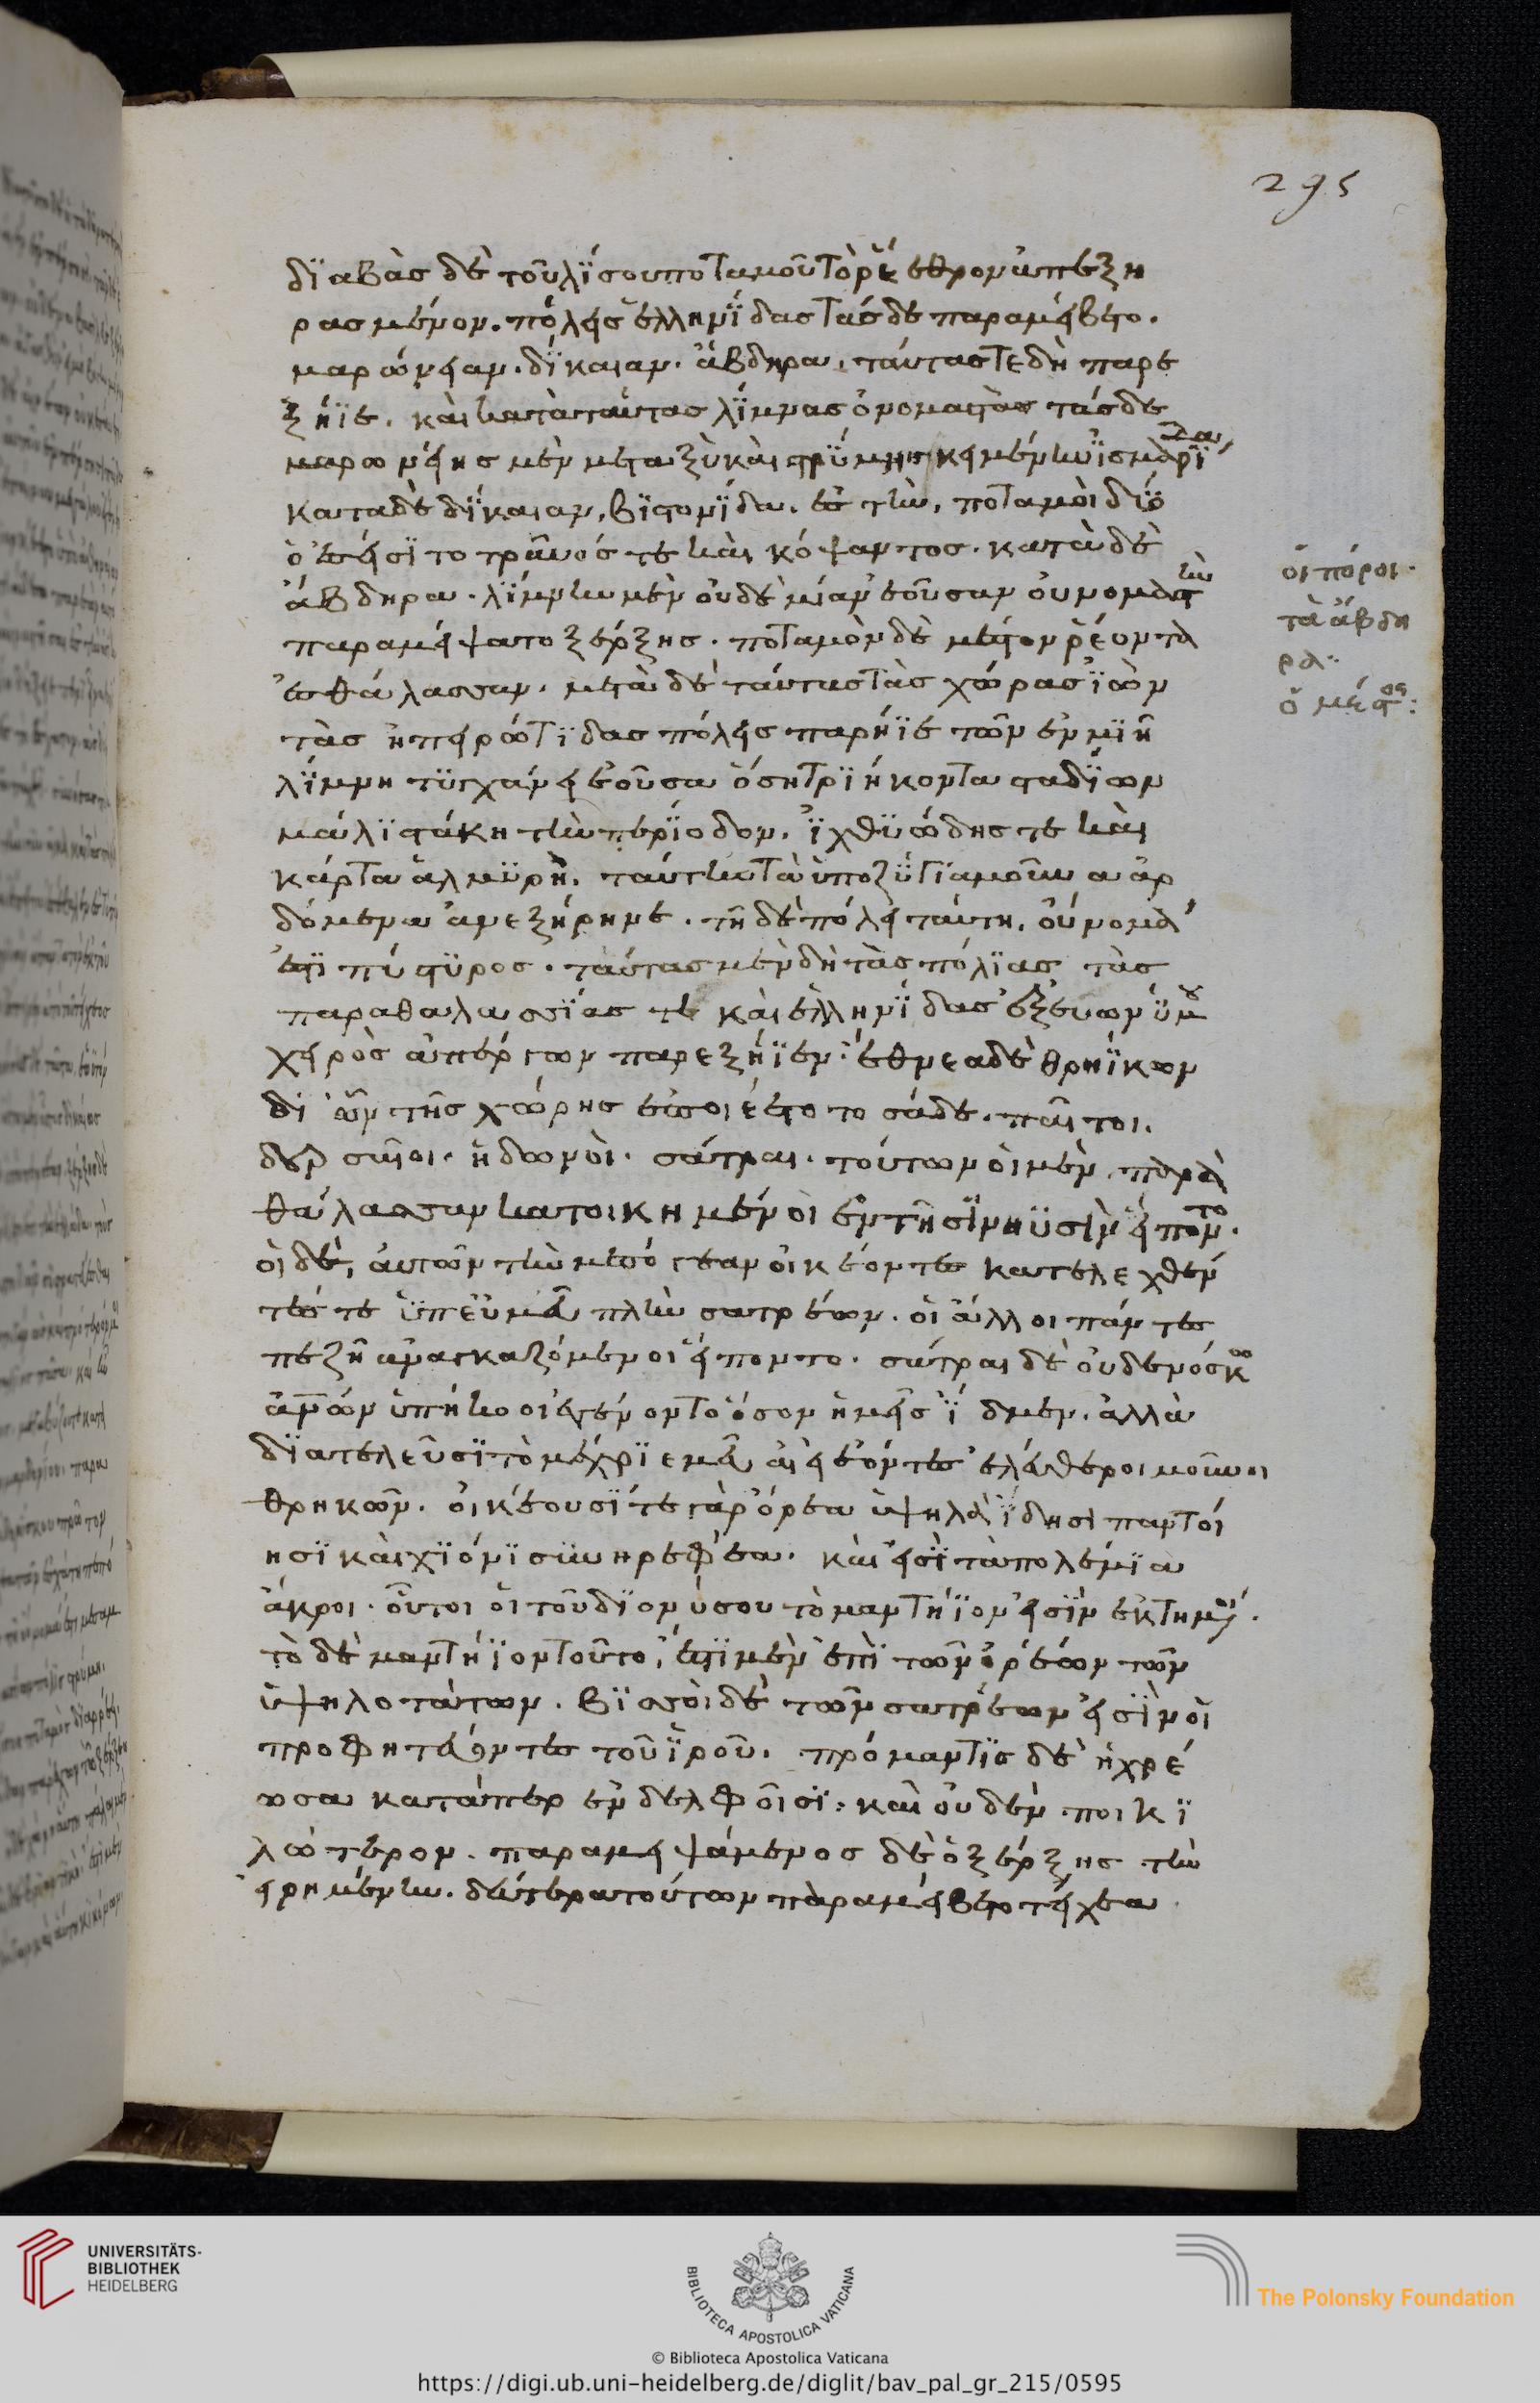 295
δϊαβὰσ δὲ τοῦ λΐσου ποταμοῦ τὸ ρέεθρον ἀπεξη
ρασμένον. πόλεισ ἑλληνΐδασ τάσδε παραμείβετο.
μαρώνειαν. δΐκαιαν. ἄβδηρα. ταύτασ τε δὴ παρε
ξήϊε. καὶ κατὰ ταύτασ λΐμνασ ὀνομαστὰσ τάσδε
μαρωνείησ μὲν μεταξὺ καὶ στρΰμησ κειμένην ϊ̓σμαρΐδα
κατὰ δὲ δΐκαιαν, βϊστονΐδα. ἐσ τὴν, ποταμοὶ δΰο
ἐσιεῖσϊ το τραῦόσ τε καὶ κόψαντοσ. κατὰ δὲ
ἄβδηρα. λΐμνην μὲν οὐδεμίαν ἐοῦσαν οὐνομαστὴν
παραμείψατο ξέρξησ. ποταμὸν δὲ μέστον ῥέοντα
ἐσ θάλασσαν. μετὰ δὲ ταύτασ τὰσ χώρασ ϊ̓ὼν
τὰσ ἠπειρώτϊδασ πόλεισ παρήϊε τῶν ἐν μϊῆ
λΐμνη τϋγχάνει ἐοῦσα ὅση τρϊήκοντα σταδΐων
μάλϊστάκη τὴν περΐοδον. ϊ̓χθϋώδησ τε καὶ
κάρτα ἁλμϋρή. ταύτην τὰ ὑποζΰγϊα μοῦνα ἀρ
δόμενα ἀνεξήρηνε. τῆ δὲ πόλει ταύτη, οὔνομά
ἐστϊ πύστϋροσ. ταύτασ μὲν δὴ τὰσ πόλϊασ τὰσ
παραθαλασσΐασ τε καὶ ἑλληνΐδασ ἐξ εὐωνΰμου
χειρὸσ ἀπέργων παρεξήϊεν: ἔθνεα δὲ θρηΐκων
δι' ὧν τῆσ χώρησ ὁδοιέετο τοσάδε. παῖτοι.
δερσαῖοι. ἠδωνοὶ. σάτραι. τούτων οἱ μὲν, παρὰ
θάλασσαν κατοικημένοι ἐν τῆσϊ νηϋσὶν εἵποντο.
οἱ δὲ, αὐτῶν τὴν μεσόγεαν οἰκέοντεσ καταλεχθέν
τέσ τε ϋ̔π' ἐμεῦ πλὴν σατρέων. οἱ ἄλλοι πάντεσ
πεζῆ ἀναγκαζόμενοι εἵποντο. σάτραι δὲ οὐδενόσ κω
ἀνθρώπων ὑπήκοοι ἐγένοντο ὅσον ἡμεῖσ ϊ̓́δμεν. ἀλλὰ
δϊατελεῦσϊ τὸ μέχρϊ ἐμεῦ αἰεὶ ἐόντεσ ἐλεύθεροι μοῦνοι
θρηκῶν. οἰκέουσϊ τε γὰρ ὄρεα ὑψηλὰ ϊ̓́δησι παντοί
ησϊ καὶ χϊόνϊ συνηρεφέα. καὶ εἰσῒ τὰ πολέμϊα
ἄκροι. οὗτοι οἱ τοῦ δϊονύσου τὸ μαντήϊον εἰσῒν ἐκτημένοι.
τὸ δὲ μαντήϊον τοῦτο, ἐστϊ μὲν ἐπὶ τῶν ὀρέων τῶν
ὑψηλοτάτων. βϊσσοὶ δὲ τῶν σατρέων εἰσῒν οἱ
προφητεύοντεσ τοῦ ϊ̔ροῦ. πρόμαντϊσ δὲ ἡ χρέ
ουσα κατάπερ ἐν δελφοῖσϊ: καὶ οὐδὲν ποικϊ
λώτερον. παραμειψάμενοσ δὲ ὁ ξέρξησ τὴν
εἰρημένην. δεύτερα τούτων παραμείβετο τείχεα
οἱ πόροι.
τὰ ἄβδη
ρα:
ὁ μέστοσ:
UNIVERSITÄTS-
BIBLIOTHEK
HEIDELBERG
BIBLIOTECA APOSTOLICA VATICANA
The Polonsky Foundation
© Biblioteca Apostolica Vaticana
https://digi.ub.uni-heidelberg.de/diglit/bav_pal_gr_215/0595